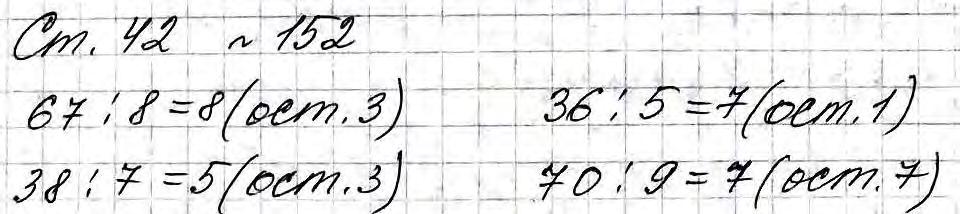 Ст. 42 ~ 152
67 : 8 = 8 (ост. 3) 36 : 5 = 7 (ост. 1)
38 : 7 = 5 (ост. 3) 70 : 9 = 7 (ост. 7)